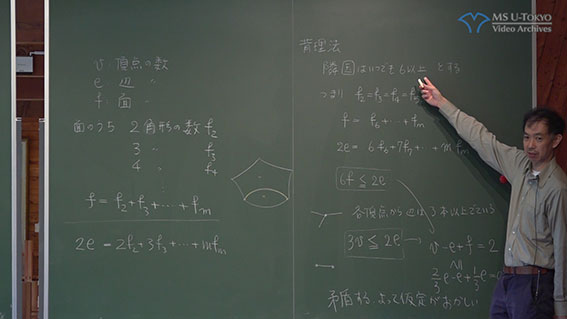 MS U-TOKYO
Video Archives
v: 頂点の数
e 辺 〃
f: 面 〃
面のうち 2角形の数 f₂
3 〃 f₃
4 〃 f₄
⋮
f = f₂+f₃+⋯+fₘ
2e = 2f₂+3f₃+⋯+mfₘ
背理法
隣国はいつでも6以上 とする
つまり f₂=f₃=f₄=f₅
f = f₆+⋯+fₘ
2e = 6f₆+7f₇+⋯+mfₘ
6f ≦ 2e
各頂点から辺は3本以上でている
3v ≦ 2e
v-e+f=2
≦
2/3e-e+1/3e=0
矛盾する、よって仮定がおかしい